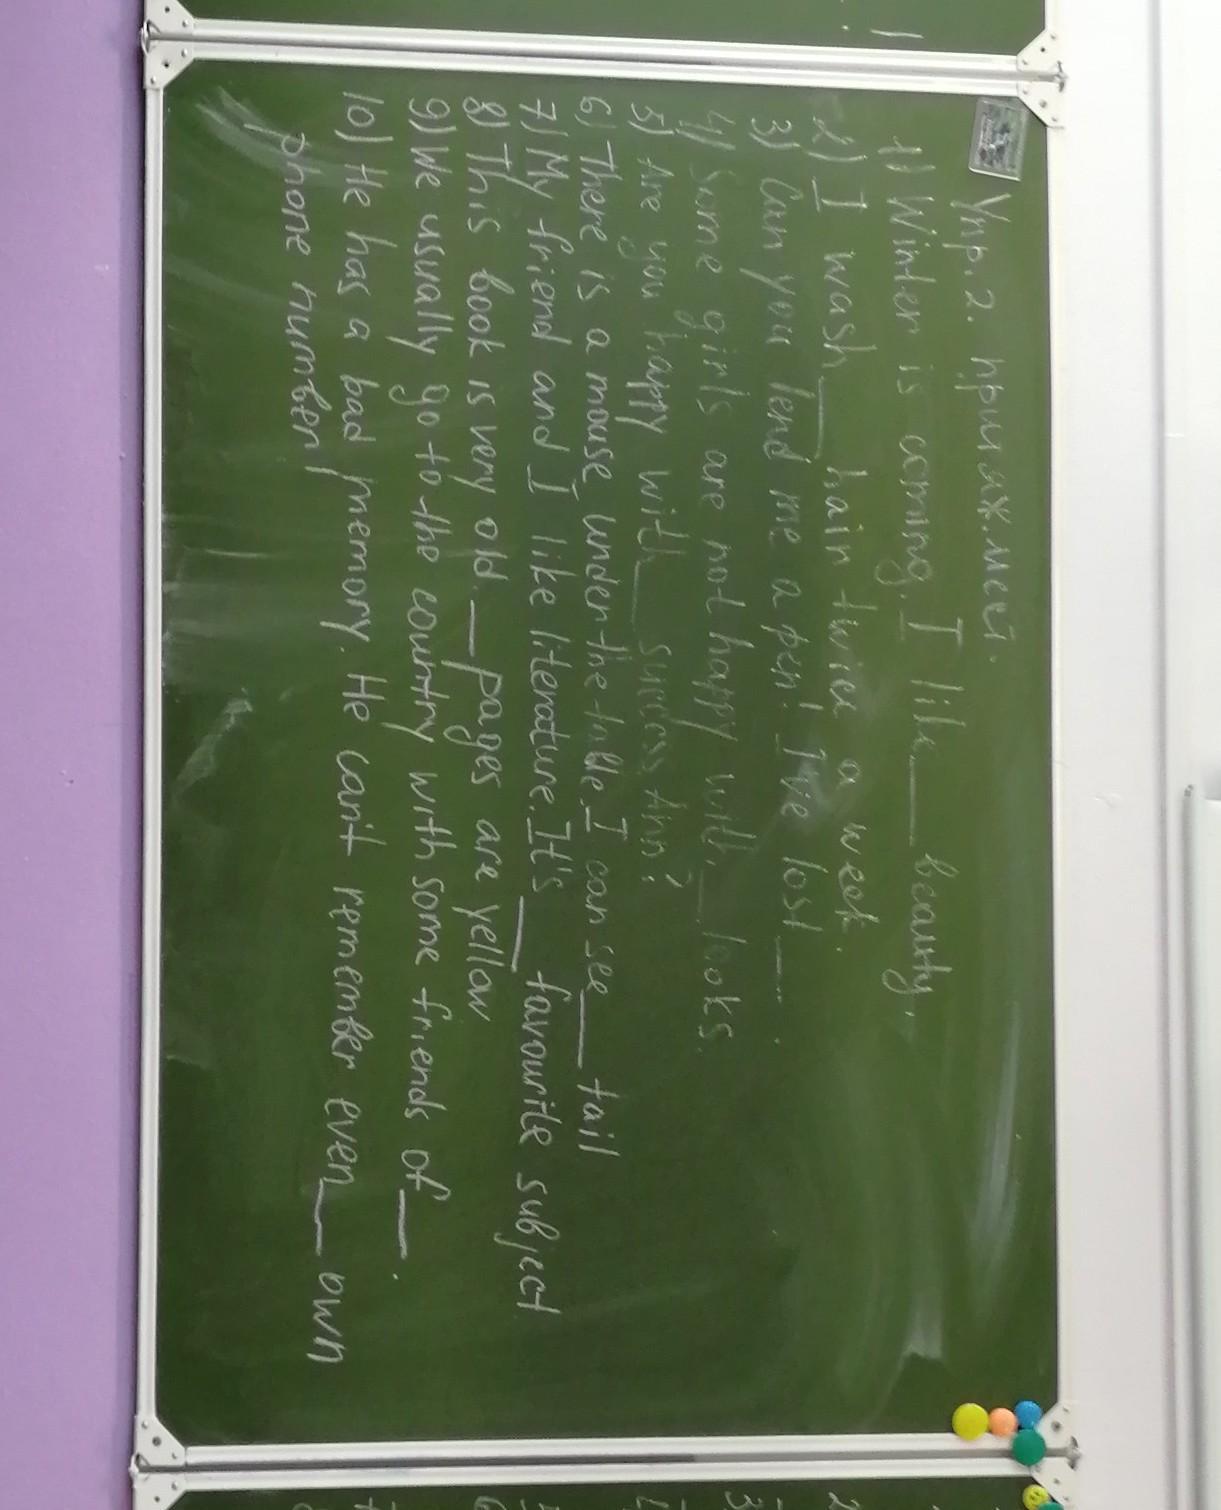 Упр. 2. притяж. мест.
1) Winter is coming. I like ___ beauty.
2) I wash ___ hair twice a week.
3) Can you lend me a pen! I've lost ___.
4) Some girls are not happy with ___ looks.
5) Are you happy with ___ success, Ann?
6) There is a mouse under the table. I can see ___ tail
7) My friend and I like literature. It's ___ favourite subject
8) This book is very old. ___ pages are yellow
9) We usually go to the country with some friends of ___.
10) He has a bad memory. He can't remember even ___ own
phone number!